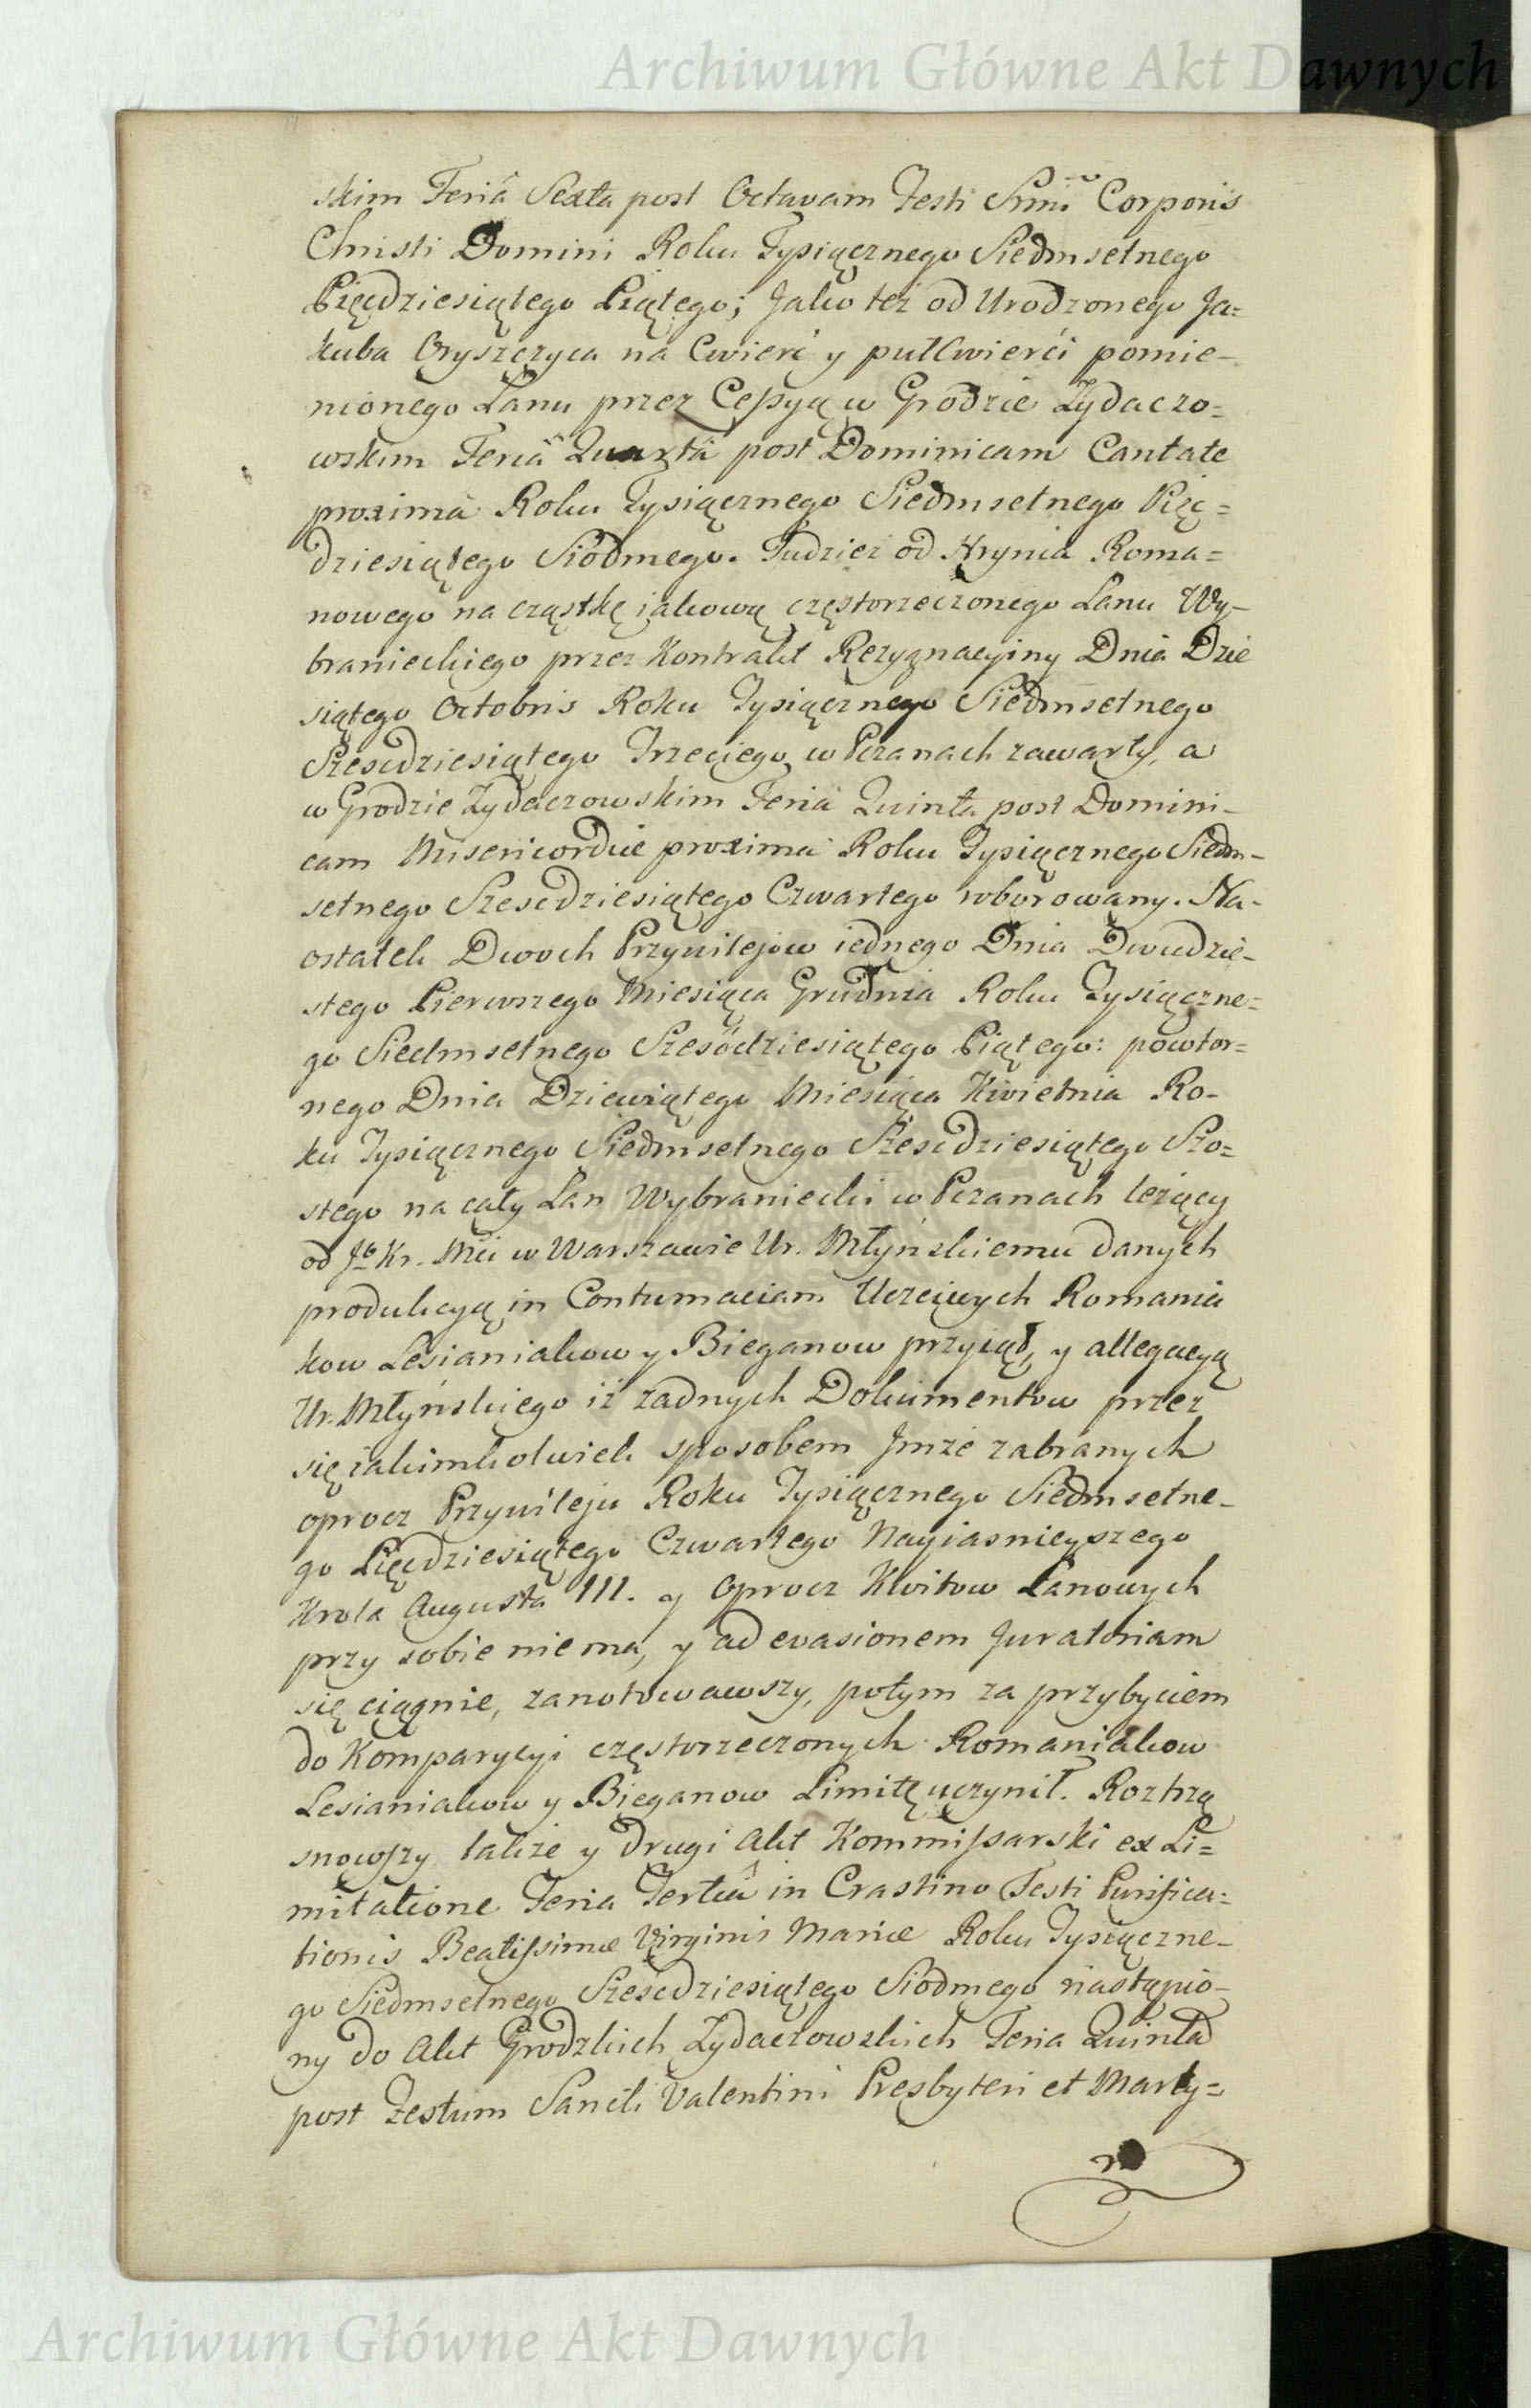 Archiwum Główne Akt Dawnych
skim Feriâ Sexta post Octavam Festi Smi Corporis
Christi Domini Roku Tysiącznego Siedmsetnego
Pięćdziesiątego Piątego; Jako też od Urodzonego Ja=
kuba Oryszczyca na Cwierć y pułCwierci pomie-
nionego Łanu przez Cessyą w Grodzie Zydaczo=
wskim Feriâ Quarta post Dominicam Cantate
proxima Roku Tysiącznego Siedmsetnego Pięć=
dziesiątego Siodmego. Tudziez od Hrynia Roma=
nowego na cząstkę jakową częstorzeczonego Łanu Wy-
branieckiego przez Kontrakt Rezygnacyiny Dnia Dzie
siątego Octobris Roku Tysiącznego Siedmsetnego
Szescdziesiątego Trzeciego w Pczanach zawarty, a
w Grodzie Zydaczowskim Feria Quinta post Domini-
cam Misericordiæ proxima Roku Tysiącznego Siedm-
setnego Szescdziesiątego Czwartego roborowany. Na-
ostatek Dwoch Przywilejow iednego Dnia Dwudzie-
stego Pierwszego Miesiąca Grudnia Roku Tysiączne=
go Siedmsetnego Szesćdziesiątego Piątego: powtor=
nego Dnia Dziewiątego Miesiąca Kwietnia Ro-
ku Tysiącznego Siedmsetnego Szescdziesiątego Szo=
stego na cały Łan Wybraniecki w Pczanach leżący
od Jo Kr. Mći w Warszawie Ur. Młyńskiemu danych
produkcyą in Contumaciam Uczciwych Romania
kow Lesianiakow y Bieganow przyiął, y allegacyą
Ur. Młyńskiego iż żadnych Dokumentow przez
się iakimkolwiek sposobem Jmże zabranych
oprocz Przywileju Roku Tysiącznego Siedmsetne-
go Pięćdziesiątego Czwartego Nayiasnieyszego
Krola Augusta III. y oprocz Kwitow Łanowych
przy sobie nie ma, y ad evasionem Juratoriam
się ciągnie, zanotowawszy, potym za przybyciem
do Komparycyi częstorzeczonych Romaniakow
Lesianiakow y Bieganow Limitę uczynił. Roztrzą
snowszy także y drugi Akt Kommissarski ex Li=
mitatione Feria Tertiâ in Crastino Festi Purifica=
tionis Beatissimæ Virginis Mariæ Roku Tysiączne-
go Siedmsetnego Szescdziesiątego Siodmego nastąpio-
ny do Akt Grodzkich Zydaczowskich Feria Quinta
post Festum Sancti Valentini Presbyteri et Marty=
Archiwum Główne Akt Dawnych